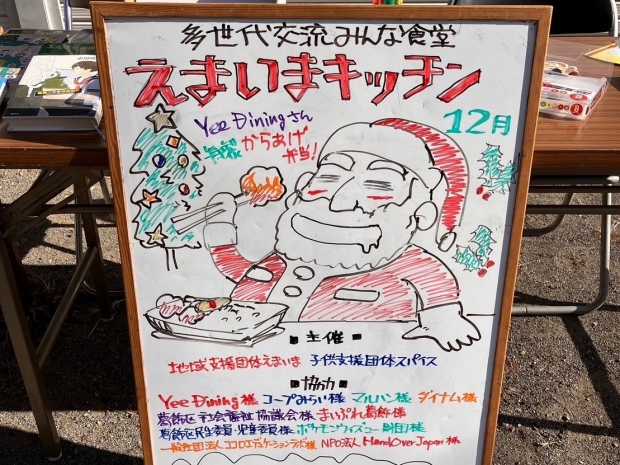 多世代交流みんな食堂
えまいまキッチン
12月
Yee Diningさん
特製
からあげ
弁当!
■主催■
地域支援団体えまいま 子供支援団体スパイス
■協力■
Yee Dining様 コープみらい様 マルハン様 ダイナム様
葛飾区社会福祉協議会様 まいぷれ葛飾様
葛飾区民生委員・児童委員様 ポケモンウィズユー財団様
一般社団法人ココロエデュケーションラボ様 NPO法人 Hand Over Japan様